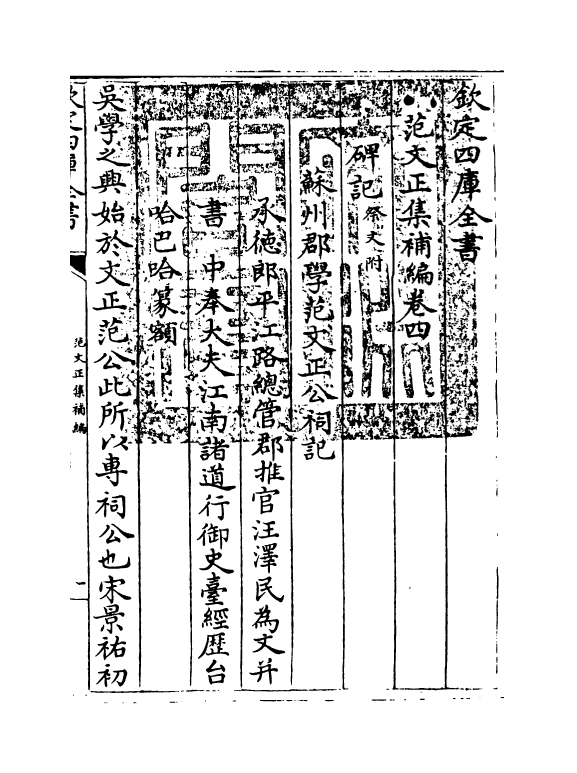 欽定四庫全書
范文正集補編卷四
碑記祭文附
蘇州郡學范文正公祠記
承德郎平江路總管郡推官汪澤民為文并
書　中奉大夫江南諸道行御史臺經歷台
哈巴哈篆額
吳學之興始於文正范公此所以專祠公也宋景祐初
欽定四庫全書
范文正集補編